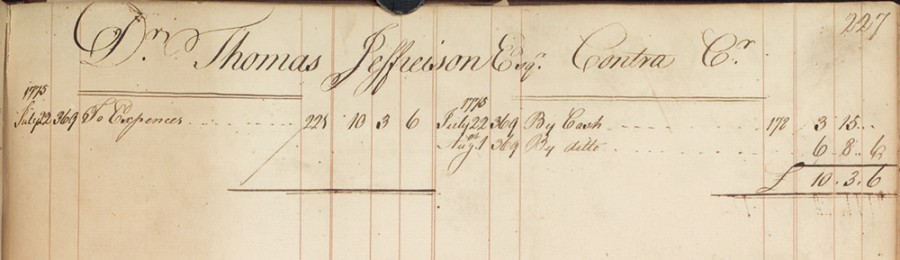 227
Dr. Thomas Jefferson Esqr. Contra Cr.
1775 1775
July 22 369 To Expences 228 10 3 6 July 22 369 By Cash 178 3 15
Augt 1 369 By ditto 6 8 6
£ 10 3 6